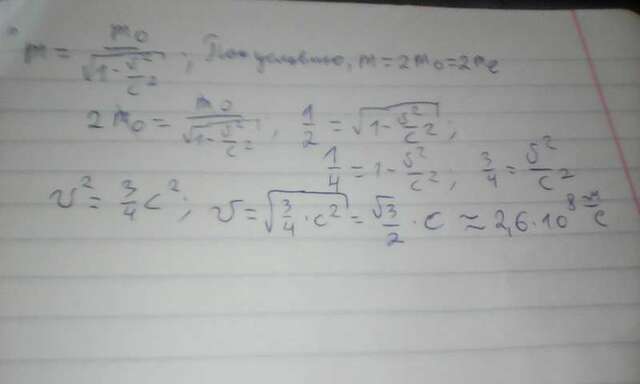 m = m₀/√(1-υ²/c²); По условию, m = 2m₀ = 2mₑ
2m₀ = m₀/√(1-υ²/c²), 1/2 = √(1-υ²/c²);
1/4 = 1-υ²/c²; 3/4 = υ²/c²
υ² = 3/4 c²; υ = √(3/4·c²) = √3/2·c ≈ 2,6·10⁸ м/с